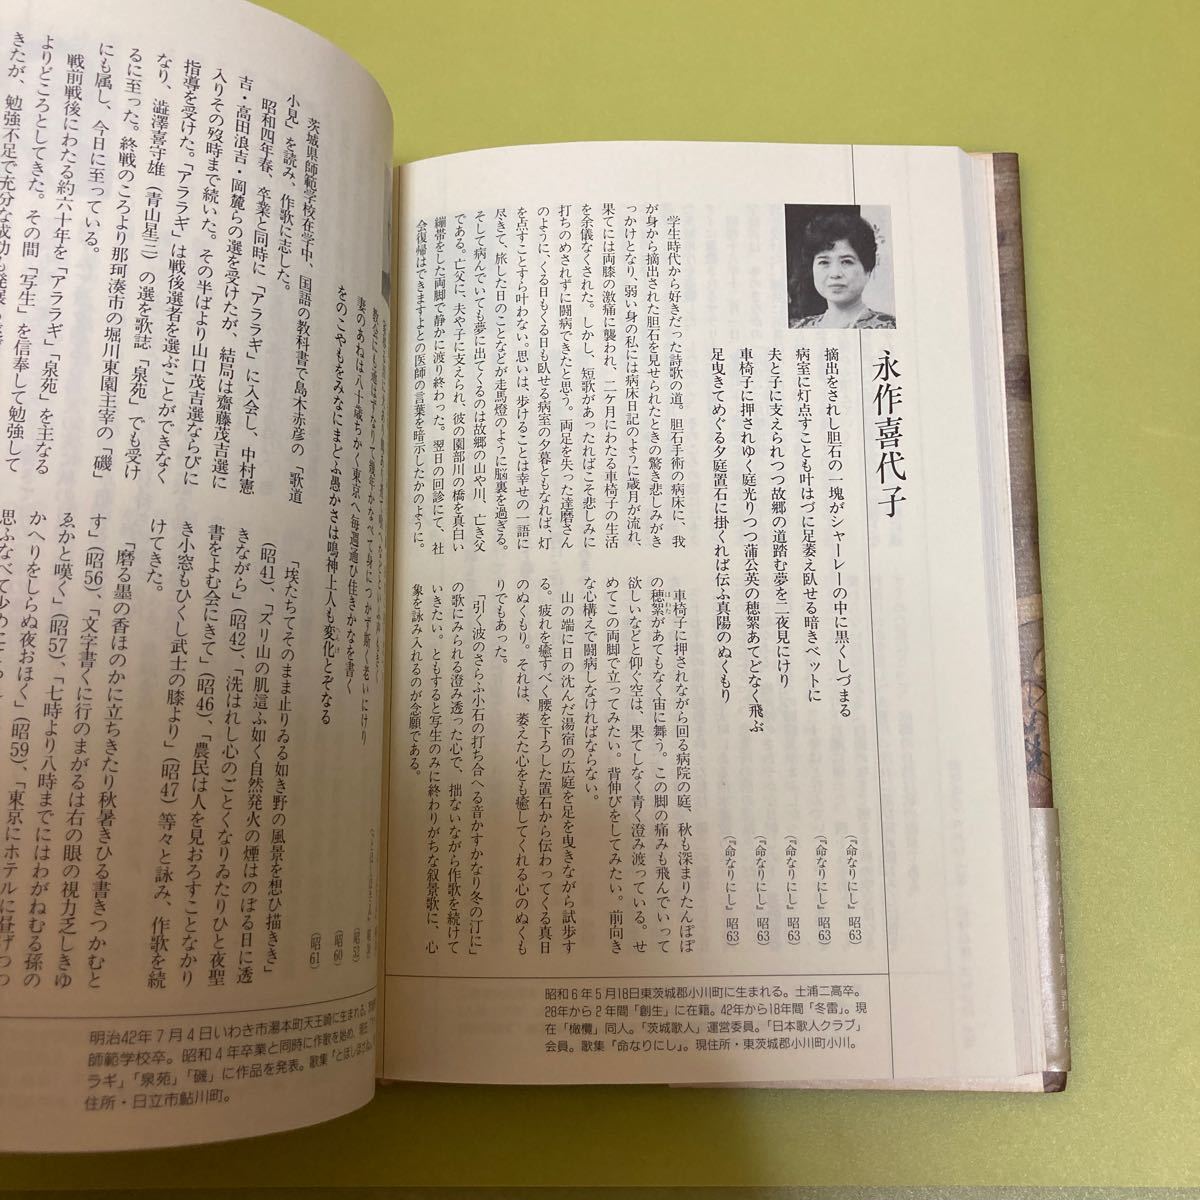 永作喜代子
摘出をされし胆石の一塊がシャーレーの中に黒くしづまる
(『命なりにし』昭63)
病室に灯点すことも叶はづに足萎え臥せる暗きベットに
(『命なりにし』昭63)
夫と子に支えられつつ故郷の道踏む夢を二夜見にけり
(『命なりにし』昭63)
車椅子に押されゆく庭光りつつ蒲公英の穂絮あてどなく飛ぶ
(『命なりにし』昭63)
足曳きてめぐる夕庭置石に掛くれば伝ふ真陽のぬくもり
(『命なりにし』昭63)
学生時代から好きだった詩歌の道。胆石手術の病床に、我
が身から摘出された胆石を見せられたときの驚き悲しみがき
っかけとなり、弱い身の私には病床日記のように歳月が流れ、
果てには両膝の激痛に襲われ、二ケ月にわたる車椅子の生活
を余儀なくされた。しかし、短歌があったればこそ悲しみに
打ちのめされずに闘病できたと思う。両足を失った達磨さん
のように、くる日もくる日も臥せる病室の夕暮ともなれば、灯
を点すことすら叶わない。思いは、歩けることは幸せの一語に
尽きて、旅した日のことなどが走馬燈のように脳裏を過ぎる。
そして病んでいても夢に出てくるのは故郷の山や川、亡き父
である。亡父に、夫や子に支えられ、彼の園部川の橋を真白い
繃帯をした両脚で静かに渡り終わった。翌日の回診にて、社
会復帰はできますよとの医師の言葉を暗示したかのように。
車椅子に押されながら回る病院の庭、秋も深まりたんぽぽ
の穂絮があてもなく宙に舞う。この脚の痛みも飛んでいって
欲しいなどと仰ぐ空は、果てしなく青く澄み渡っている。せ
めてこの両脚で立ってみたい。背伸びをしてみたい。前向き
な心構えで闘病しなければならない。
山の端に日の沈んだ湯宿の広庭を足を曳きながら試歩す
る。疲れを癒すべく腰を下ろした置石から伝わってくる真日
のぬくもり。それは、萎えた心をも癒してくれる心のぬくも
りでもあった。
「引く波のさらふ小石の打ち合へる音かすかなり冬の汀に」
の歌にみられる澄み透った心で、拙ないながら作歌を続けて
いきたい。ともすると写生のみに終わりがちな叙景歌に、心
象を詠み入れるのが念願である。
昭和6年5月18日東茨城郡小川町に生まれる。土浦二高卒。
28年から2年間「創生」に在籍。42年から18年間「冬雷」。現
在「橄欖」同人。「茨城歌人」運営委員。「日本歌人クラブ」
会員。歌集「命なりにし」。現住所・東茨城郡小川町小川。
妻のあねは八十歳ちかく東京へ毎週通ひ住きかなを書く
をのこやもをみなにまどふ愚かさは鳴神上人も変化とぞなる
(昭52)
(昭60)
(昭61)
茨城県師範学校在学中、国語の教科書で島木赤彦の「歌道
小見」を読み、作歌に志した。
昭和四年春、卒業と同時に「アララギ」に入会し、中村憲
吉・高田浪吉・岡麓らの選を受けたが、結局は齋藤茂吉選に
入りその歿時まで続いた。その半ばより山口茂吉選ならびに
指導を受けた。「アララギ」は戦後選者を選ぶことができなく
なり、澁澤喜守雄(青山星三)の選を歌誌「泉苑」でも受け
るに至った。終戦のころより那珂湊市の堀川東園主宰の「磯」
にも属し、今日に至っている。
戦前戦後にわたる約六十年を「アララギ」「泉苑」を主なる
よりどころとしてきた。その間「写生」を信奉して勉強して
きたが、勉強不足で充分な成功も発展も
「埃たちてそのまま止りゐる如き野の風景を想ひ描きき」
(昭41)、「ズリ山の肌這ふ如く自然発火の煙はのぼる日に透
きながら」(昭42)、「洗はれし心のごとくなりゐたりひと夜聖
書をよむ会にきて」(昭46)、「農民は人を見おろすことなかり
き小窓もひくし武士の膝より」(昭47)等々と詠み、作歌を続
けてきた。
「磨る墨の香ほのかに立ちきたり秋暑きひる書きつかむと
す」(昭56)、「文字書くに行のまがるは右の眼の視力乏しきゆ
ゑかと嘆く」(昭57)、「七時より八時までにはわがねむる孫の
かへりをしらぬ夜おほく」(昭59)、「東京にホテルに昼げつつ
明治42年7月4日いわき市湯本町天王崎に生まれる。
師範学校卒。昭和4年卒業と同時に作歌を始め、現在「ア
ラギ」「泉苑」「磯」に作品を発表。歌集「とほしほさゐ」
住所・日立市鮎川町。